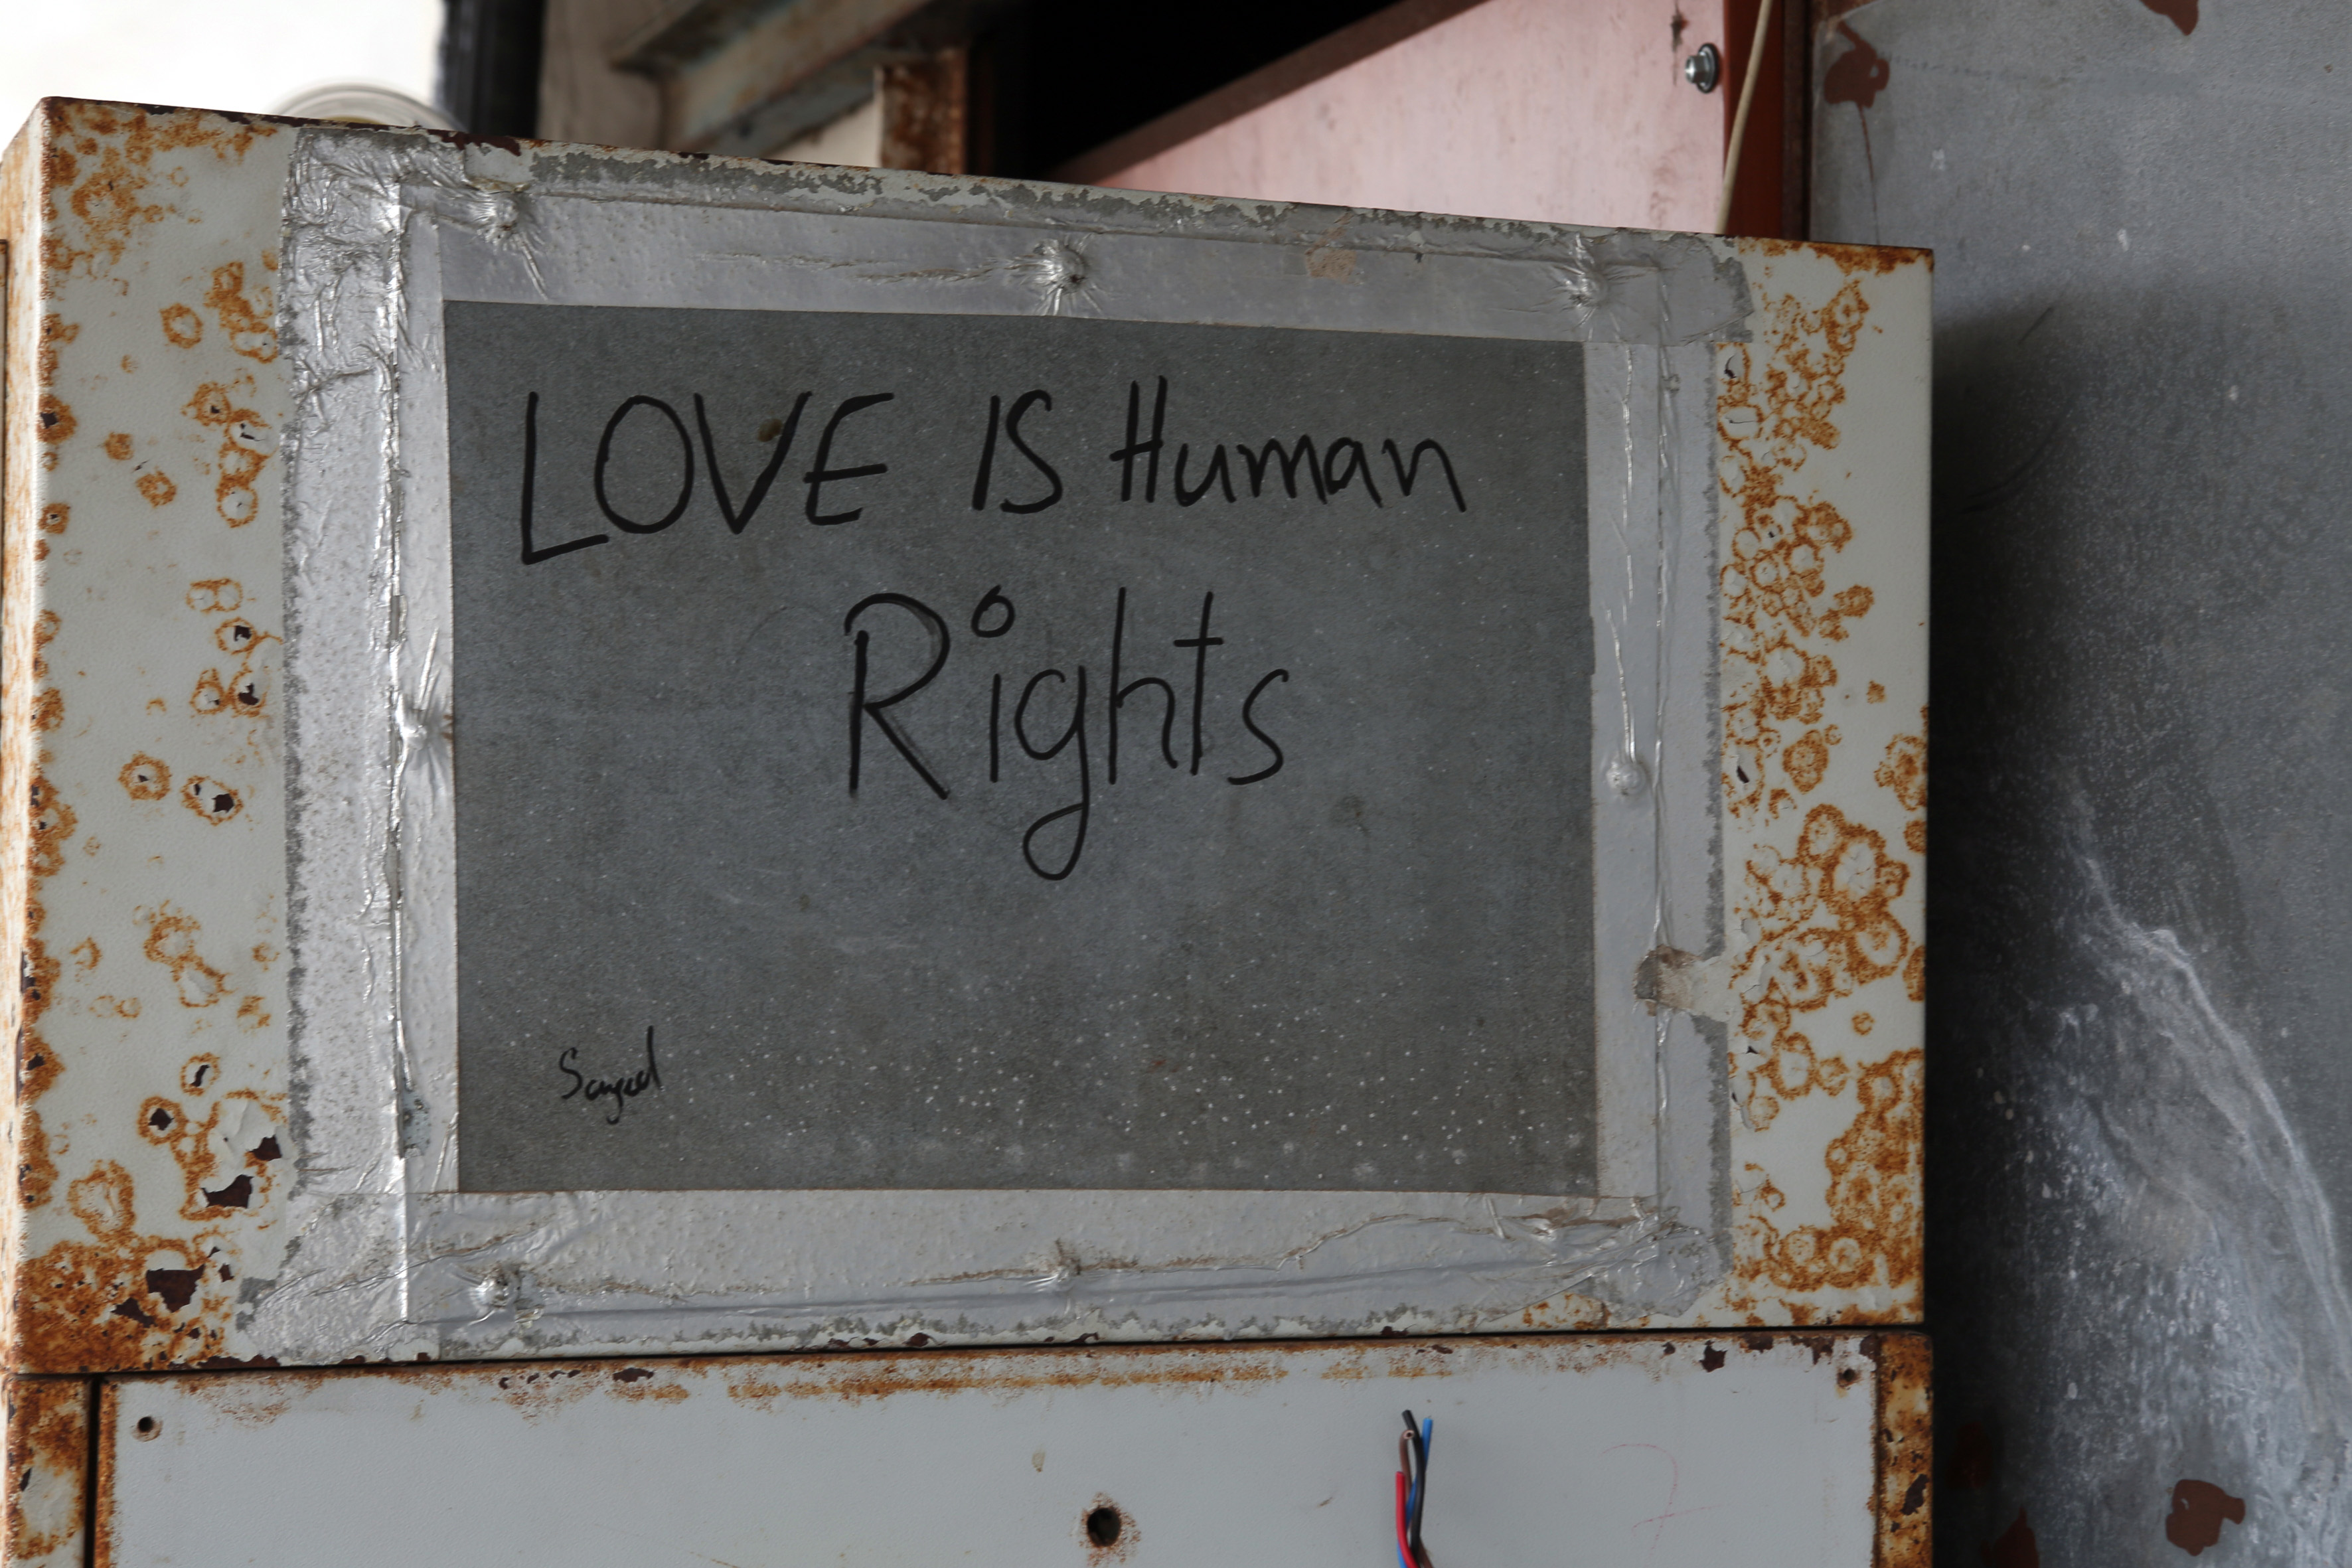 LOVE IS Human
Rights
Sayed